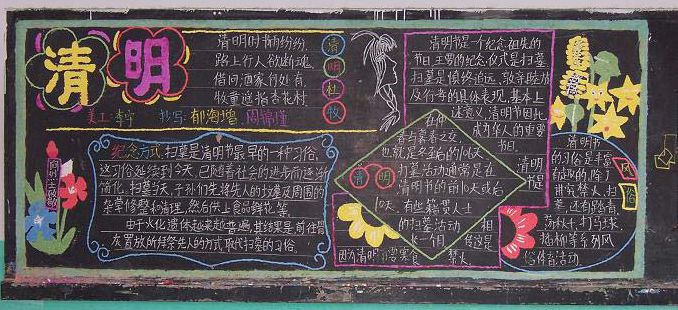 清明
清明时节雨纷纷，
路上行人欲断魂。
借问酒家何处有，
牧童遥指杏花村。
清
明
杜
牧
美工：李宁 抄写：郁海增、周锦瑾
纪念方式：扫墓是清明节最早的一种习俗，
这习俗延续到今天，已随着社会的进步而逐渐
简化。扫墓当天，子孙们先将先人的坟墓及周围的
杂草修整和清理，然后供上食品鲜花等。
由于火化遗体越来越普遍，其结果是前往骨
灰置放所拜祭先人的方式取代扫墓的习俗。
清明节是一个纪念祖先的
节日。主要的纪念仪式是扫墓，
扫墓是慎终追远、敦亲睦族
及行孝的具体表现；基本上
述意义，清明节因此
成为华人的重要
节日。
清明节是
在仲
春与暮春之交，
也就是冬至后的106天。
清明
扫墓活动通常是在
清明节的前10天或后
10天。有些籍贯人士
的扫墓活动
长一个月
清明
提
相
传这是
因为清明节要寒食
禁火
清明节
的习俗是丰富
有趣的，除了
讲究禁火、扫
墓，还有踏青、
荡秋千、打马球、
插柳等系列风
俗体育活动。
风
俗